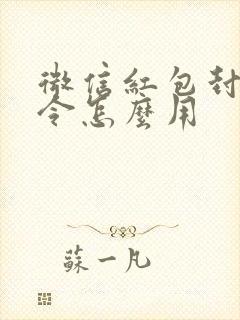 微信紅包封
令怎麼用
蘇一凡